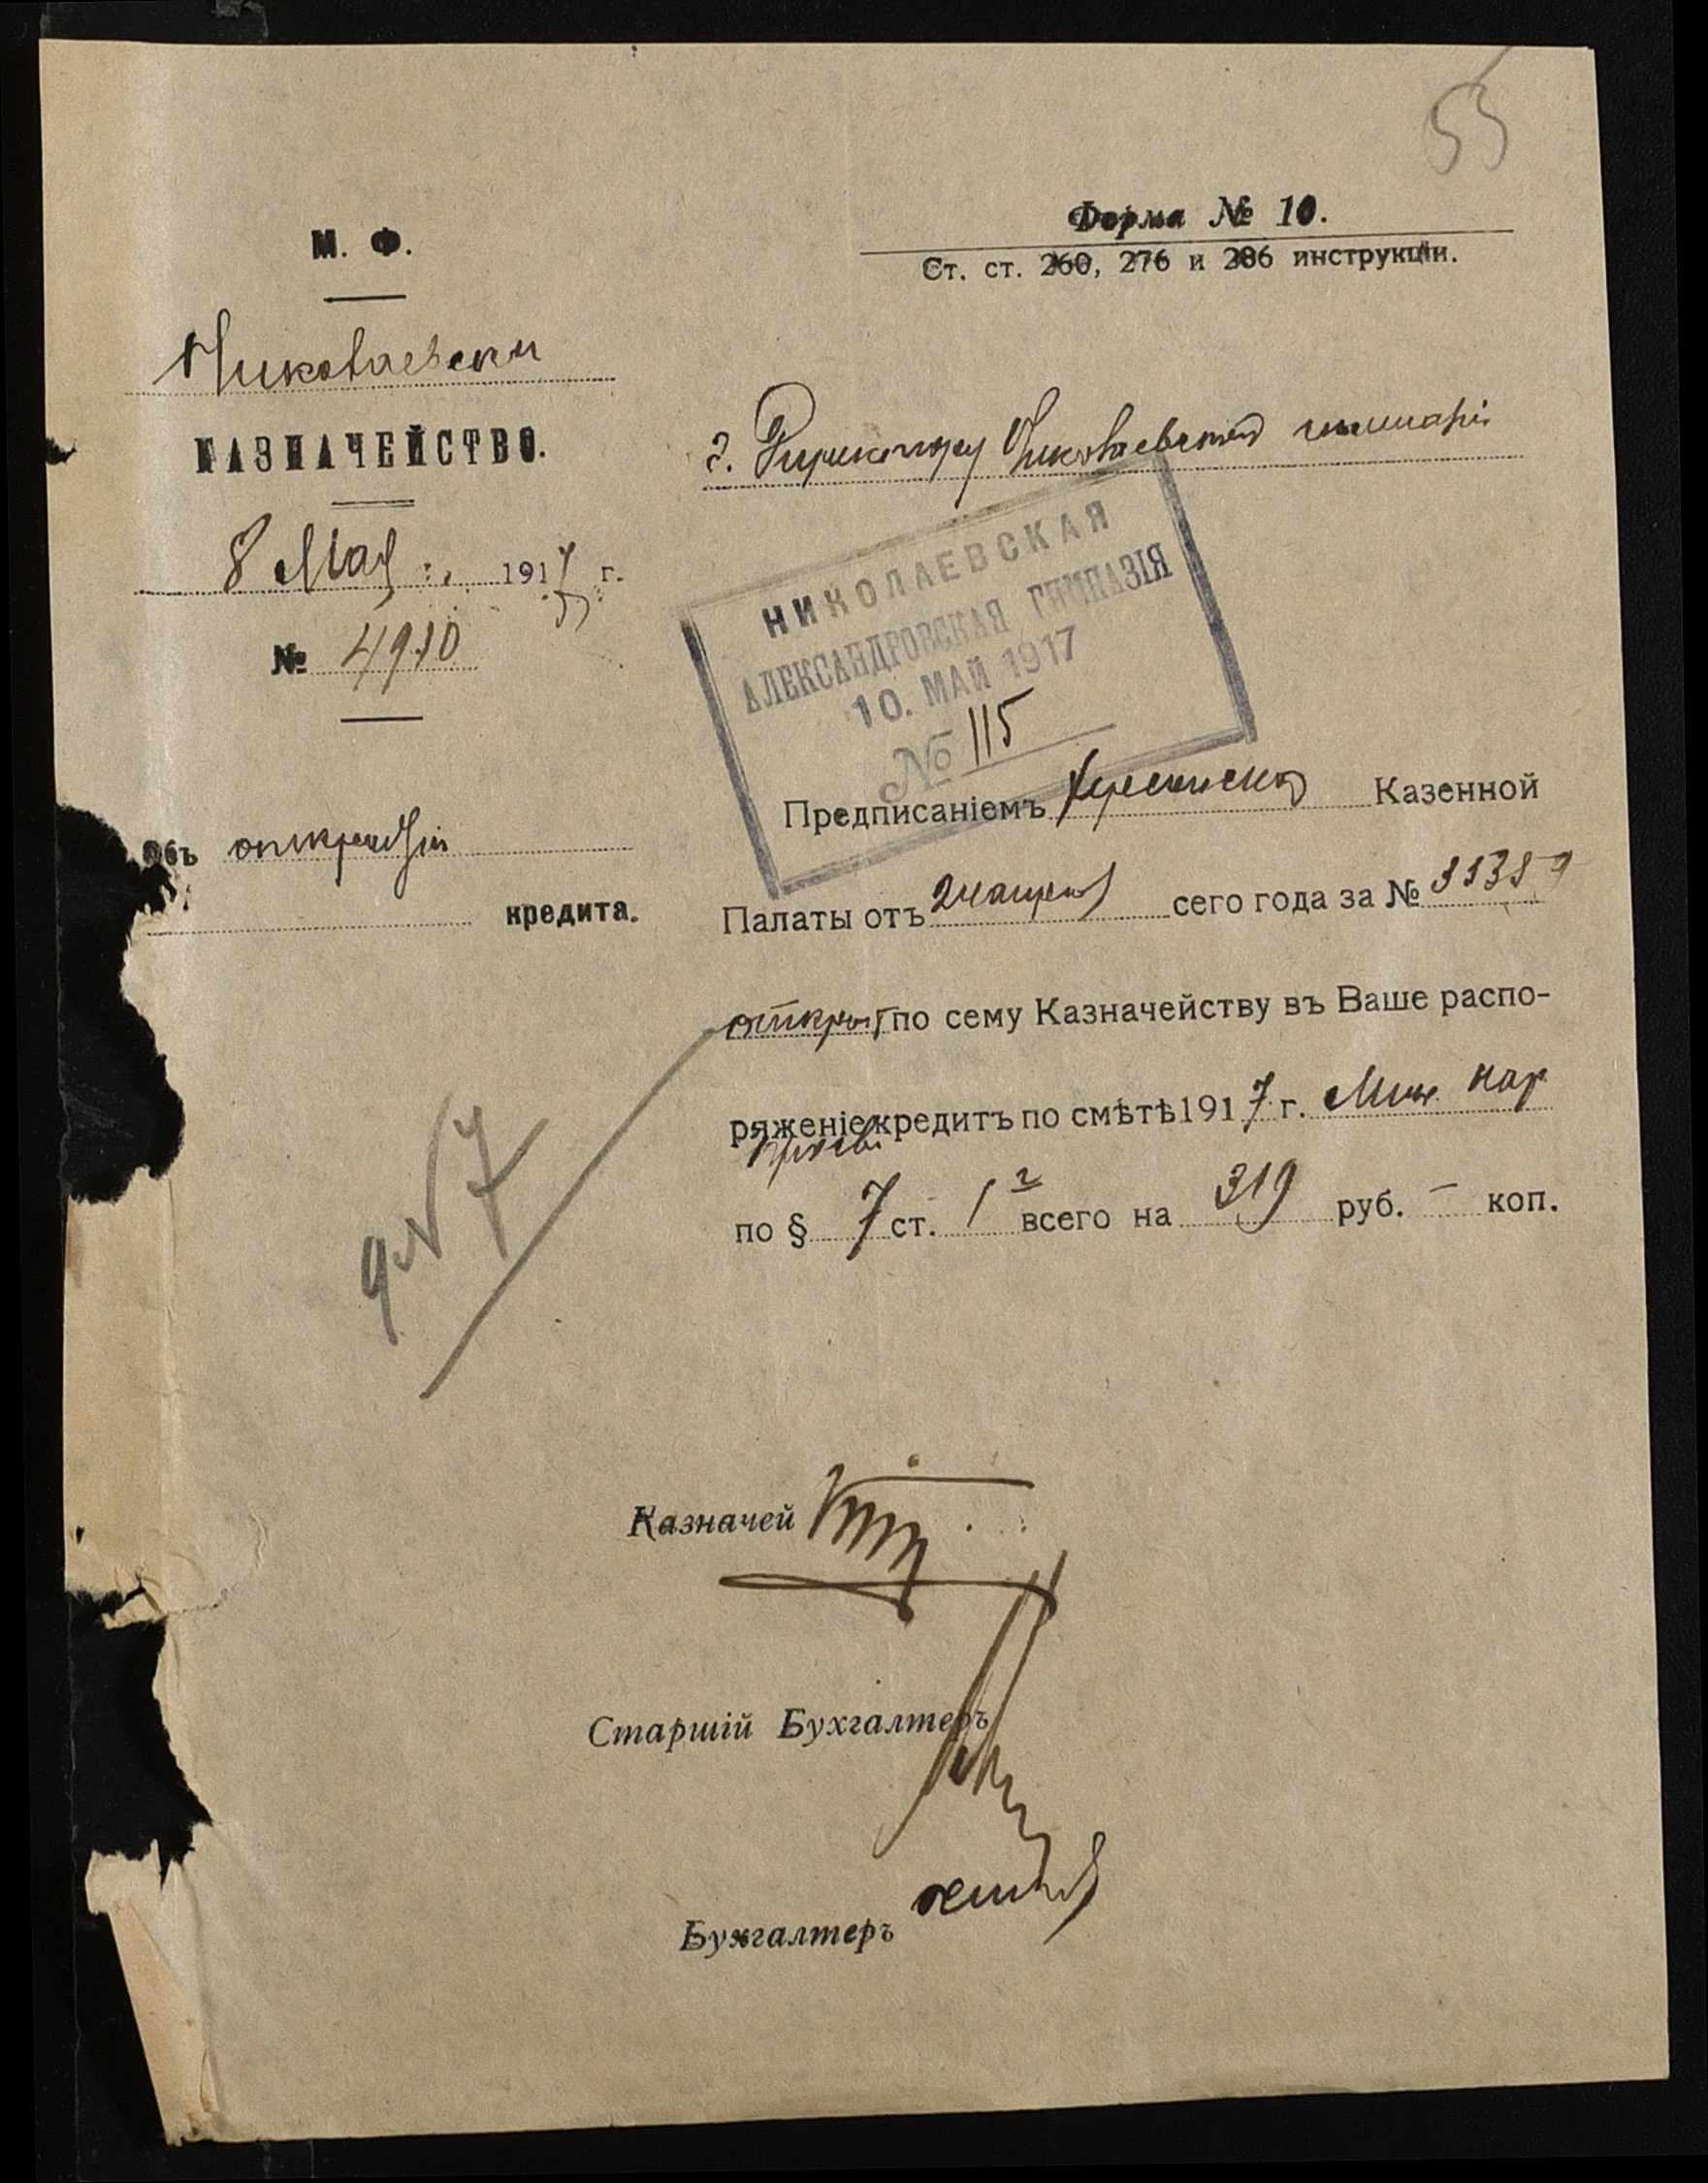 55
М. Ф.
Николаевск
КАЗНАЧЕЙСТВО.
8 Мая 1917 г.
№ 4910
Объ открытіи
кредита.
Форма № 10.
Ст. ст. 260, 276 и 286 инструкціи.
г. Директору Николаевской гимназіи
НИКОЛАЕВСКАЯ
АЛЕКСАНДРОВСКАЯ ГИМНАЗІЯ
10. МАЙ 1917
№ 115
Предписаніемъ Херсонской Казенной
Палаты отъ 24 апреля сего года за №
открытъ по сему Казначейству въ Ваше распо-
ряженіе кредитъ по смѣтѣ 1917 г. Мин. нар
просв.
по § 7 ст. 1 всего на 319 руб. — коп.
7
Казначей
Старшій Бухгалтеръ
Бухгалтеръ